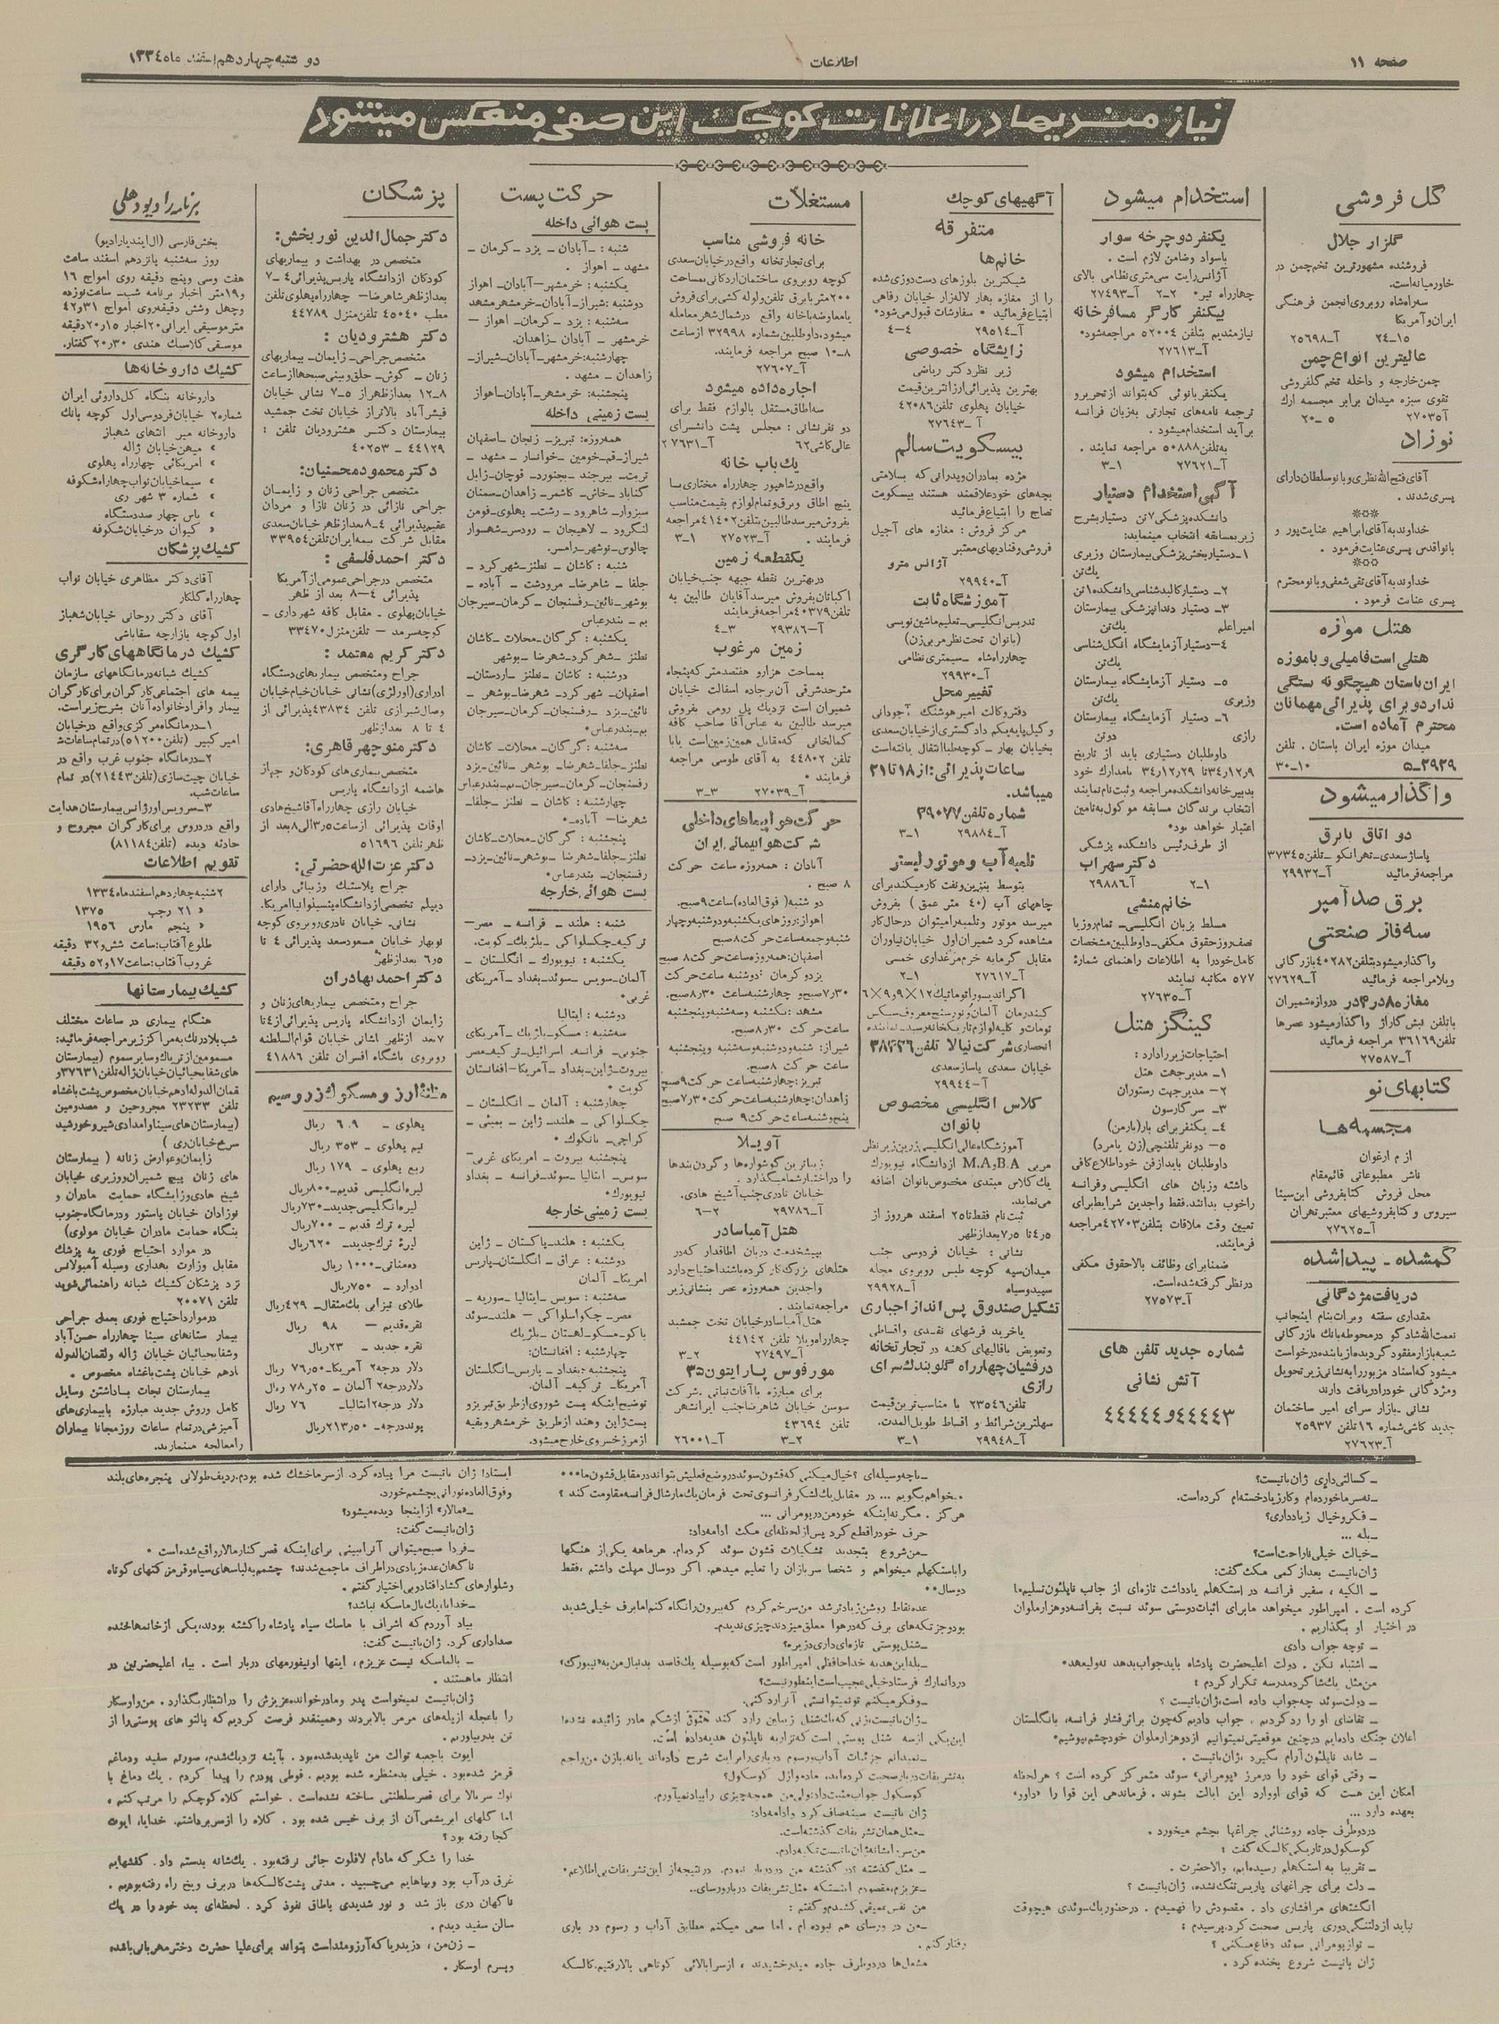 صفحه ۱۱
اطلاعات
دو شنبه چهاردهم اسفند ماه ۱۳۳۴
نیازمندیها در اعلانات کوچک این صفحه منعکس میشود
گل فروشی
گلزار جلال
فروشنده مشهورترین تخم چمن در
خاورمیانه است.
سه راه شاه روبروی انجمن فرهنگی
ایران و آمریکا
۱۵-۲۴ آ-۲۵۶۹۸
عالیترین انواع چمن
چمن خارجه و داخله تخم گلفروشی
تقوی سبزه میدان برابر مجسمه ارك
آ-۲۷۰۳۵ ۵-۲۰
نوزاد
آقای فتح الله نظری و بانو سلطان دارای
پسری شدند.
خداوند به آقای ابراهیم عنایت پور و
بانو اقدس پسری عنایت فرمود.
خداوند به آقای تقی شعفی و بانو محترم
پسری عنایت فرمود.
هتل موزه
هتلی است فامیلی و با موزه
ایران باستان هیچگونه بستگی
ندارد و برای پذیرائی مهمانان
محترم آماده است.
میدان موزه ایران باستان . تلفن
۵-۲۹۲۹ ۱۰-۳۰
واگذار میشود
دو اتاق با برق
پاساژ سعدی-تهرانکو-تلفن ۳۷۳۴۵
مراجعه فرمائید آ-۲۹۹۳۲
برق صد آمپر
سه فاز صنعتی
واگذار میشود بتلفن ۴۰۲۸۲ بازرگانی
وبلا مراجعه فرمائید آ-۲۷۶۲۹
مغازه ۸ در ۴ در دروازه شمیران
با تلفن نبش گاراژ واگذار میشود عصرها
تلفن ۳۶۱۶۹ مراجعه فرمائید
آ-۲۷۵۸۷
کتابهای نو
مجسمه ها
از م ارغوان
ناشر مطبوعاتی قائم مقام
محل فروش کتابفروشی ابن سینا
سیروس و کتابفروشیهای معتبر تهران
آ-۲۷۶۲۵
گمشده - پیدا شده
دریافت مژدگانی
مقداری سفته و برات بنام اینجانب
نعمت الله شادکو در محوطه بانك بازرگانی
شعبه بازار مفقود گردیده از یابنده درخواست
میشود که اسناد مزبور را به نشانی زیر تحویل
ومژدگانی خود را دریافت دارند
نشانی-بازار سرای امیر ساختمان
جدید کاشی شماره ۱۶ تلفن ۲۵۹۳۷
آ-۲۷۶۲۳
استخدام میشود
یکنفر دوچرخه سوار
باسواد وضامن لازم است.
آژانس رایت سی متری نظامی بالای
چهارراه تیر ۲-۲ آ-۲۷۴۹۳
بیکنفر کارگر مسافر خانه
نیازمندیم بتلفن ۵۲۰۰۴ مراجعه شود
آ-۲۷۶۱۳
استخدام میشود
یکنفر بانوئی که بتواند از تحریر و
ترجمه نامه های تجارتی به زبان فرانسه
برآید استخدام میشود.
به تلفن ۵۰۸۸۸ مراجعه نمایند.
آ-۲۷۶۲۱ ۱-۳
آگهی استخدام دستیار
دانشکده پزشکی ۷ تن دستیار بشرح
زیر بمسابقه انتخاب مینماید:
۱-دستیار بخش پزشکی بیمارستان وزیری
یك تن
۲-دستیار کالبد شناسی دانشکده ۱ تن
۳- دستیار دندانپزشکی بیمارستان
امیر اعلم یك تن
۴-دستیار آزمایشگاه انگل شناسی
یك تن
۵- دستیار آزمایشگاه بیمارستان
وزیری یك تن
۶- دستیار آزمایشگاه بیمارستان
رازی دو تن
داوطلبان دستیاری باید از تاریخ
۹ر۱۲ر۳۴ تا ۲۹ر۱۲ر۳۴ با مدارك خود
بدبیرخانه دانشکده مراجعه و ثبت نام نمایند
انتخاب برندگان مسابقه موکول به تامین
اعتبار خواهد بود
از طرف رئیس دانشکده پزشکی
دکتر سهراب
۱-۲ آ-۲۹۸۸۶
خانم منشی
مسلط بزبان انگلیسی-تمام روز یا
نصف روز حقوق مکفی-داوطلبین مشخصات
کامل خود را به اطلاعات راهنمای شمارهٔ
۵۷۷ مکاتبه نمایند
آ-۲۷۶۳۵
کینگز هتل
احتیاجات زیر را دارد:
۱- مدیر جهت هتل
۲- مدیر جهت رستوران
۳- سر گارسون
۴- یکنفر برای بار (بارمن)
۵- دو نفر تلفنچی (زن یا مرد)
داوطلبان باید از فن خود اطلاع کافی
داشته وزبان های انگلیسی وفرانسه
را خوب بدانند. فقط واجدین شرایط برای
تعیین وقت ملاقات بتلفن ۴۲۷۰۳ مراجعه
فرمایند.
ضمنا برای وظائف بالا حقوق مکفی
در نظر گرفته شده است.
آ-۲۷۵۷۳
شماره جدید تلفن های
آتش نشانی
۴۴۴۴۳ و ۴۴۴۴۴
آگهیهای کوچك
متفرقه
خانم ها
شیکترین بلوزهای دست دوزی شده
را از مغازه بهار لاله زار خیابان رفاهی
ابتیاع فرمائید سفارشات قبول می شود
آ-۲۹۵۱۴ ۴-۴
زایشگاه خصوصی
زیر نظر دکتر ریاضی
بهترین پذیرائی ارزانترین قیمت
خیابان پهلوی تلفن ۴۲۰۸۶
آ-۲۷۶۴۳
بیسکویت سالم
مژده بمادران و پدرانی که بسلامتی
بچه های خود علاقمند هستند بیسکویت
نصاح را ابتیاع فرمائید
مرکز فروش: مغازه های آجیل
فروشی و قنادیهای معتبر
آژانس مترو
آ-۲۹۹۴۰
آموزشگاه ثابت
تدریس انگلیسی-تعلیم ماشین نویسی
(بانوان تحت نظر مربی زن)
چهارراه شاه-سیمتری نظامی
آ-۲۹۹۳۰
تغییر محل
دفتر وکالت امیر هوشنگ آجودانی
وکیل پایه یکم دادگستری از خیابان سعدی
بخیابان بهار-کوچه طبا انتقال یافته است
ساعات پذیرائی: از ۱۸ تا ۲۱
میباشد.
شماره تلفن ۳۹۰۷۷
آ-۲۹۸۸۴ ۱-۳
تلمبه آب و موتور لیستر
بتوسط بنزین و نفت کار میکند برای
چاههای آب (۴۰ متر عمق) بفروش
میرسد موتور وتلمبه را میتوان درحال کار
مشاهده کرد شمیران اول خیابان نیاوران
مقابل گرمابه خرم مرغداری خمسی
آ-۲۷۶۱۷ ۱-۲
انحصاری شرکت نیالا تلفن
خیابان سعدی پاساژ سعدی
آ-۲۹۹۴۴
کلاس انگلیسی مخصوص
بانوان
آموزشگاه عالی انگلیسی زرین زیر نظر
مربی B.A و M.A از دانشگاه نیویورك
یك کلاس مبتدی مخصوص بانوان اضافه
می نماید.
ثبت نام فقط تا ۲۵ اسفند هر روز از
۵ر۴ تا ۵ر۷ بعد از ظهر
نشانی: خیابان فردوسی جنب
میدان سپه کوچه طبس روبروی مجله
سپید و سیاه آ-۲۹۹۲۸
تشکیل صندوق پس انداز اجباری
با خرید فرشهای نقدی واقساطی
وتعویض باقالیهای کهنه در تجارتخانه
درفشیان چهارراه گلوبندك سرای
رازی
تلفن ۲۳۵۴۶ با مناسب ترین قیمت
سهلترین شرائط و اقساط طویل المدت.
آ-۲۹۹۴۸ ۱-۳
مستغلات
خانه فروشی مناسب
برای تجارتخانه واقع در خیابان سعدی
کوچه روبروی ساختمان اردکانی بمساحت
۲۰۰ متر با برق تلفن و لوله کشی برای فروش
یا معاوضه با خانه واقع درشمال شهر معامله
میشود. داوطلبین بشماره ۳۲۹۹۸ از ساعت
۸-۱۰ صبح مراجعه فرمایند.
آ-۲۷۶۰۷
اجاره داده میشود
سه اطاق مستقل بالوازم فقط برای
دو نفر نشانی: مجلس پشت دانشسرای
عالی کاشی ۶۲ آ-۲۷۶۳۱
یك باب خانه
واقع در شاهپور چهارراه مختاری با
پنج اطاق و برق و تمام لوازم بقیمت مناسب
بفروش میرسد طالبین بتلفن ۴۱۴۰۲ مراجعه
فرمایند. آ-۲۷۵۲۳ ۱-۳
یکقطعه زمین
در بهترین نقطه جبهه جنب خیابان
اکباتان بفروش میرسد آقایان طالبین به
تلفن ۴۰۳۷۹ مراجعه فرمایند
آ-۲۹۳۸۶ ۳-۴
زمین مرغوب
بمساحت هزار و هفتصد متر که پنجاه
متر حد شرقی آن بر جاده اسفالت خیابان
شمیران است نزدیك پل رومی بفروش
میرسد طالبین به عباس آقا صاحب کافه
کما لخانی که مقابل همین زمین است یا با
تلفن ۴۴۸۰۲ به آقای طوسی مراجعه
فرمایند
آ-۲۷۰۳۹ ۳-۳
حرکت هواپیماهای داخلی
شرکت هواپیمائی ایران
آبادان: همه روزه ساعت حرکت
۸ صبح.
دو شنبه (فوق العاده) ساعت ۹ صبح.
اهواز: روزهای یکشنبه و دوشنبه و چهار
شنبه و جمعه ساعت حرکت ۸ صبح
اصفهان: همه روزه ساعت حرکت ۸ صبح
یزد و کرمان: دوشنبه ساعت حرکت
۷ر۳۰ صبح و چهارشنبه ساعت ۸ر۳۰ صبح.
مشهد: یکشنبه و سه شنبه و پنجشنبه
ساعت حرکت ۸ر۳۰ صبح.
شیراز: شنبه و دوشنبه و سه شنبه و پنجشنبه
ساعت حرکت ۸ صبح.
تبریز: چهارشنبه ساعت حرکت ۹ صبح
زاهدان: چهارشنبه ساعت حرکت ۷ر۳۰ صبح
پنج و شنبه ساعت حرکت ۹ صبح
آویلا
زیباترین گوشواره ها و گردن بندها
را در اختیار شما میگذارد.
خیابان نادری جنب آشیخ هادی.
آ-۲۹۷۸۶ ۲-۶
هتل آمباسادر
بپیشخدمت دربان اطاقدار که در
هتلهای بزرگ کار کرده باشند احتیاج دارد
واجدین همه روزه عصر بنشانی زیر
مراجعه نمایند.
هتل آمباسادر خیابان تخت جمشید
چهارراه ویلا تلفن ۴۴۱۴۲
آ-۲۷۴۹۷ ۲-۳
مورفوس پاراتیون ۳۵
برای مبارزه با آفات نباتی، شرکت
سوسن خیابان شاهرضا جنب ایرانشهر
تلفن ۴۳۶۹۴
۲-۳ آ-۲۶۰۰۱
حرکت پست
پست هوائی داخله
شنبه: آبادان - یزد-کرمان-
مشهد-اهواز.
یکشنبه: خرمشهر-آبادان-اهواز
دوشنبه: شیراز-آبادان-خرمشهر مشهد
سه شنبه: یزد-کرمان-اهواز-
خرمشهر-آبادان-زاهدان.
چهارشنبه: خرمشهر-آبادان-شیراز-
زاهدان-مشهد.
پنجشنبه: خرمشهر-آبادان-اهواز
پست زمینی داخله
همه روزه: تبریز-زنجان-اصفهان
شیراز-قم-خومین-خوانسار-مشهد-
تربت-بیرجند-بجنورد-قوچان-زابل
گناباد-خاش-کاشمر-زاهدان-سمنان
سبزوار-شاهرود-رشت-پهلوی-فومن
لنگرود-لاهیجان-رودسر-شهسوار
چالوس-نوشهر-رامسر.
شنبه: کاشان-نطنز-شهرکرد-
جلفا-شاهرضا-مرودشت-آباده-
بوشهر-نائین-رفسنجان-کرمان-سیرجان
بم-بندرعباس
یکشنبه: گرگان-محلات-کاشان
نطنز-شهرکرد-شهرضا-بوشهر
دوشنبه: کاشان-نطنز-اردستان-
اصفهان-شهرکرد-شهرضا-بوشهر-
نائین-یزد-رفسنجان-کرمان-سیرجان
بم-بندرعباس
سه شنبه: گرگان-محلات-کاشان
نطنز-جلفا-شهرضا-بوشهر-نائین-یزد
رفسنجان-کرمان-سیرجان-بم-بندرعباس
چهارشنبه: کاشان-نطنز-جلفا-
شهرضا-آباده-
پنجشنبه: گرگان-محلات-کاشان
نطنز-جلفا-شهرضا-بوشهر-نائین-یزد-
رفسنجان-بندرعباس
پست هوائی خارجه
شنبه: هلند-فرانسه-مصر-
ترکیه-چکسلواکی-بلژیك-کویت.
یکشنبه: نیویورك-انگلستان-
آلمان-سویس-سوئد-بغداد-آمریکای
غربی
دوشنبه: ایتالیا
سه شنبه: مسکو-بلژیك-آمریکای
جنوبی-فرانسه-اسرائیل-ترکیه-مصر
بیروت-ژاپن-بغداد-آمریکا-افغانستان
کویت
چهارشنبه: آلمان-انگلستان-
چکسلواکی-هلند-ژاپن-بمبئی-
کراچی-بانکوك
پنجشنبه: بیروت-امریکای غربی-
سویس-ایتالیا-سوئد-فرانسه-بغداد
نیویورك
پست زمینی خارجه
یکشنبه: هلند-پاکستان-ژاپن
دوشنبه: عراق-انگلستان-پاریس
امریکا-آلمان
سه شنبه: سویس-ایتالیا-سوریه-
مصر-چکواسلواکی-هلند-سوئد
باکو-مسکو-لهستان-بلژیك
چهارشنبه: افغانستان:
پنجشنبه: بغداد-پاریس-انگلستان
آمریکا-ترکیه-آلمان.
توضیح اینکه پست شوروی از طریق تبریز و
پست ژاپن و هند از طریق خرمشهر و بقیه
از مرز خسروی خارج میشود.
پزشکان
دکتر جمال الدین نوربخش:
متخصص در بهداشت و بیماریهای
کودکان از دانشگاه پاریس پذیرائی ۴-۷
بعد از ظهر شاهرضا-چهارراه پهلوی تلفن
مطب ۴۵۰۴۰ تلفن منزل ۴۴۷۸۹
دکتر هشترودیان:
متخصص جراحی-زایمان-بیماریهای
زنان-گوش-حلق و بینی صبحها از ساعت
۸-۱۲ بعد از ظهر از ۵-۷ نشانی خیابان
فیشر آباد بالاتر از خیابان تخت جمشید
بیمارستان دکتر هشترودیان تلفن:
۴۴۱۲۹-۴۰۲۵۳
دکتر محمود محسنیان:
متخصص جراحی زنان و زایمان
جراحی نازائی در زنان نازا و مردان
عقیم پذیرائی ۴-۸ بعد از ظهر خیابان سعدی
مقابل شرکت بیمه ایران تلفن ۳۳۹۵۴
دکتر احمد فلسفی:
متخصص در جراحی عمومی از آمریکا
پذیرائی ۴-۸ بعد از ظهر
خیابان پهلوی. مقابل کافه شهرداری-
کوچه سرمد-تلفن منزل ۳۳۴۷۰
دکتر کریم معتمد:
جراح و متخصص بیماریهای دستگاه
ادراری (اورلژی) نشانی خیابان خیام خیابان
وصال شیرازی تلفن ۴۳۸۳۴ پذیرائی از
۴ تا ۸ بعد از ظهر
دکتر منوچهر قاهری:
متخصص بیماری های کودکان و جهاز
هاضمه از دانشگاه پاریس
خیابان رازی چهارراه آقا شیخ هادی
اوقات پذیرائی از ساعت ۵ر۳ الی ۸ بعد از
ظهر تلفن ۵۱۶۹۶
دکتر عزت الله حضرتی:
جراح پلاستیك و زیبائی دارای
دیپلم تخصصی از دانشگاه پنسیلوانیا امریکا.
نشانی. خیابان نادری روبروی کوچه
نوبهار خیابان مسعود سعد پذیرائی ۴ تا
۵ر۶ بعد از ظهر
دکتر احمد بهادران
جراح و متخصص بیماریهای زنان و
زایمان از دانشگاه پاریس پذیرائی از ۴ تا
۷ بعد از ظهر نشانی خیابان قوام السلطنه
روبروی باشگاه افسران تلفن ۴۱۸۸۶
مظنه ارز و مسکوك زر و سیم
پهلوی - ۶۰۹ ریال
نیم پهلوی - ۳۵۳ ریال
ربع پهلوی - ۱۷۹ ریال
لیره انگلیسی قدیم-۸۰۰ ریال
لیره انگلیسی جدید-۷۳۰ ریال
لیره ترك قدیم - ۷۰۰ ریال
لیره ترك جدید-۶۲۰ ریال
ده منائی-۱۰۰۰ ریال
ادوارد - ۷۵۰ ریال
طلای تیزابی یك مثقال-۴۲۹ ریال
نقره قدیم - ۹۸ ریال
نقره جدید - ۲۳ ریال
دلار درجه ۲ آمریکا-۵۰ر۷۶ ریال
دلار درجه ۲ آلمان-۲۵ر۷۸ ریال
دلار درجه ۲ ایتالیا- ۷۶ ریال
پوند درجه - ۵۰ر۲۱۳ ریال
برنامه رادیو دهلی
بخش فارسی (ال ایندیا رادیو)
روز سه شنبه پانزدهم اسفند ساعت
هفت وسی وپنج دقیقه روی امواج ۱۶
و ۱۹ متر اخبار برنامه شب-ساعت نوزده
وچهل وشش دقیقه روی امواج ۳۱ و ۴۲
متر موسیقی ایرانی ۲۰ر اخبار ۱۵ر۲۰ دقیقه
موسقی کلاسیك هندی ۳۰ر۲۰ گفتار.
کشیك داروخانه ها
داروخانه بنگاه کل داروئی ایران
شماره ۲ خیابان فردوسی اول کوچه بانك
داروخانه میر انتهای شهباز
» میهن خیابان ژاله
» امریکائی چهارراه پهلوی
» سیما خیابان نواب چهارراه شکوفه
» شماره ۳ شهر ری
» یاس چهار صد دستگاه
» کیوان در خیابان شکوفه
کشیك پزشکان
آقای دکتر مظاهری خیابان نواب
چهارراه گلکار
آقای دکتر روحانی خیابان شهباز
اول کوچه بازارچه سقاباشی
کشیك درمانگاههای کارگری
کشیك شبانه درمانگاهای سازمان
بیمه های اجتماعی کارگران برای کارگران
بیمار وافراد خانواده آنان بشرح زیر است.
۱-درمانگاه مرکزی واقع در خیابان
امیر کبیر (تلفن ۵۱۲۰۰) در تمام ساعات شب
۲-درمانگاه جنوب غرب واقع در
خیابان چیت سازی (تلفن ۲۱۴۴۳) در تمام
ساعات شب.
۳-سرویس اورژانس بیمارستان هدایت
واقع در دروس برای کارگران مجروح و
حادثه دیده (تلفن ۸۱۱۸۴)
تقویم اطلاعات
۲ شنبه چهاردهم اسفندماه ۱۳۳۴
» ۲۱ رجب ۱۳۷۵
» پنجم مارس ۱۹۵۶
طلوع آفتاب: ساعت شش و ۳۲ دقیقه
غروب آفتاب: ساعت ۱۷ و ۵۲ دقیقه
کشیك بیمارستانها
هنگام بیماری در ساعات مختلف
شب بلادرنك به مراکز زیر مراجعه فرمائید:
مسمومین از تریاك و سایر سموم (بیمارستان
های شفا یحیائیان خیابان ژاله تلفن ۳۷۶۳۱ و
لقمان الدوله ادهم خیابان مخصوص پشت باغشاه
تلفن ۲۳۲۳۳ مجروحین و مصدومین
(بیمارستان های سینا و امدادی شیر و خورشید
سرخ خیابان ری)
زایمان و عوارض زنانه (بیمارستان
های زنان پیچ شمیران و وزیری خیابان
شیخ هادی و زایشگاه حمایت مادران و
نوزادان خیابان پاستور و درمانگاه جنوب
بنگاه حمایت مادران خیابان مولوی)
در موارد احتیاج فوری به پزشك
مقابل وزارت بهداری وسیله آمبولانس
نزد پزشکان کشیك شبانه راهنمائی شوید
تلفن ۲۰۰۷۱
درموارد احتیاج فوری بعمل جراحی
بیمارستانهای سینا چهارراه حسن آباد
وشفا یحیائیان خیابان ژاله ولقمان الدوله
ادهم خیابان پشت باغشاه مخصوص.
بیمارستان نجات با داشتن وسایل
کامل وروش جدید مبارزه با بیماری های
آمیزشی در تمام ساعات روز مجانا بیماران
را معالجه مینماید.
- کسالتی داری ژان باتیست؟
- نه سرما خورده ام و کار زیاد خسته ام کرده است.
- فکر و خیال زیاد داری؟
- بله ...
- خیالت خیلی ناراحت است؟
ژان باتیست بعد از کمی مکث گفت:
- الکیه، سفیر فرانسه در استکهلم یادداشت تازه ای از جانب ناپلئون تسلیم ما
کرده است. امپراطور میخواهد ما برای اثبات دوستی سوئد نسبت بفرانسه دو هزار ملوان
در اختیار او بگذاریم.
- توجه جواب دادی
- اشتباه نکن. دولت اعلیحضرت پادشاه باید جواب بدهد نه ولیعهد
من مثل یك شاگرد مدرسه تکرار کردم:
- دولت سوئد چه جواب داده است، ژان باتیست؟
- تقاضای او را رد کردیم. جواب دادیم که چون براثر فشار فرانسه، بانگلستان
اعلان جنگ داده ایم در چنین موقعیتی نمیتوانیم از دو هزار ملوان خود چشم بپوشیم
- شاید ناپلئون آرام بگیرد، ژان باتیست.
- وقتی قوای خود را در مرز «پومرانی» سوئد متمرکز کرده است؟ هر لحظه
امکان این هست که قوای او وارد این ایالت بشوند. فرماندهی این قوا را «داوو»
بعهده دارد ...
در دو طرف جاده روشنائی چراغها بچشم میخورد.
کوسکول در تاریکی کالسکه گفت:
- تقریبا به استکهلم رسیده ایم، والاحضرت.
- دلت برای چراغهای پاریس تنگ نشده، ژان باتیست؟
انگشتهای مرا فشاری داد. مقصودش را فهمیدم. در حضور یك سوئدی هیچوقت
نباید از دلتنگی دوری پاریس صحبت کرد. پرسیدم:
- تو از پومرانی سوئد دفاع میکنی؟
ژان باتیست شروع بخنده کرد.
- باچه وسیله ای؟ خیال میکنی که قشون سوئد در وضع فعلیش بتواند در مقابل قشون ما...
میخواهم بگویم ... در مقابل یك لشکر فرانسوی تحت فرمان یك مارشال فرانسه مقاومت کند؟
هرگز. مگر نه اینکه خود من در پومرانی ...
حرف خود را قطع کرد پس از لحظه ای مکث ادامه داد:
- من شروع بتجدید تشکیلات قشون سوئد کرده ام. هر ماهه یکی از هنگها
را باستکهلم میخواهم و شخصا سربازان را تعلیم میدهم. اگر دو سال مهلت داشتم، فقط
دو سال
عده نقاط روشن زیادتر شد من سرخم کردم که بیرون رانگاه کنم اما برف خیلی شدید
بود و جز تکه های برف که در هوا معلق میزدند چیزی ندیدم.
- شنل پوستی تازه ای داری دزیره؟
- بله این هدیه خدا حافظی امپراطور است که بوسیله یك قاصد بدنبال من به «نیبورك»
در دانمارك فرستاد خیلی عجیب است اینطور نیست؟
- و فکر میکنم تو نمیتوانستی آنرا رد کنی.
کوسکول جواب مثبت داد: ولی من همه چیزی را بیاد نمیآورم.
ژان باتیست سینه صاف کرد و ادامه داد:
- مثل همان تشریفات گذشته است.
من سر به شانه ژان باتیست تکیه دادم.
من نفس عمیقی کشیدم و گفتم:
- من در ورسای هم نبوده ام. اما سعی میکنم مطابق آداب و رسوم در باری
رفتار کنم.
مشعلها در دو طرف جاده میدرخشیدند، از سر بالائی کوتاهی بالا رفتیم. کالسکه
ایستاد! ژان باتیست مرا پیاده کرد. از سرما خشك شده بودم. ردیف طولانی پنجره های بلند
وفوق العاده نورانی بچشم خورد.
- «مالار» از اینجا دیده میشود؟
ژان باتیست گفت:
- فردا صبح میتوانی آنرا ببینی برای اینکه قصر کنار مالار واقع شده است
ناگهان عده زیادی در اطراف ما جمع شدند؟ چشم به لباسهای سیاه و قرمز کتهای کوتاه
وشلوارهای گشاد افتاد و بی اختیار گفتم.
- خدایا، یك بال ماسکه نباشد؟
بیاد آوردم که اشراف با ماسك سیاه پادشاه را کشته بودند، یکی از خانمها خنده
صداداری کرد. ژان باتیست گفت:
- بالماسکه نیست عزیزم، اینها اونیفورمهای دربار است. بیا، اعلیحضرتین در
انتظار ما هستند.
ژان باتیست نمیخواست پدر ومادر خوانده عزیزش را در انتظار بگذارد. من و اسکار
را با عجله از پله های مرمر بالا بردند وهمینقدر فرصت کردیم که پالتو های پوستی را از
تن بدر بیاوریم.
ایوت با جعبه توالت من ناپدید شده بود. بآینه نزدیك شدم، صورتم سفید و دماغم
قرمز شده بود. خیلی بدمنظره شده بودم. قوطی پودرم را پیدا کردم. یك دماغ با
نوك سربالا برای قصر سلطنتی ساخته نشده است. خواستم کلاه کوچکم را مرتب کنم،
اما گلهای ابریشمی آن از برف خیس شده بود. کلاه را از سر برداشتم. خدایا، ایوت
کجا رفته بود؟
خدا را شکر که مادام لافلوت جائی نرفته بود. یك شانه بدستم داد. کفشهایم
غرق در آب بود و بپاهایم می چسبید. مدتی پشت کالسکه ها در برف ویخ راه رفته بودیم.
ناگهان دری باز شد و نور شدیدی باطاق نفوذ کرد. لحظه ای بعد خود را در یك
سالن سفید دیدم.
- زن من، دزیدریا که آرزومند است بتواند برای علیا حضرت دختر مهربانی باشد
وپسرم اوسکار.